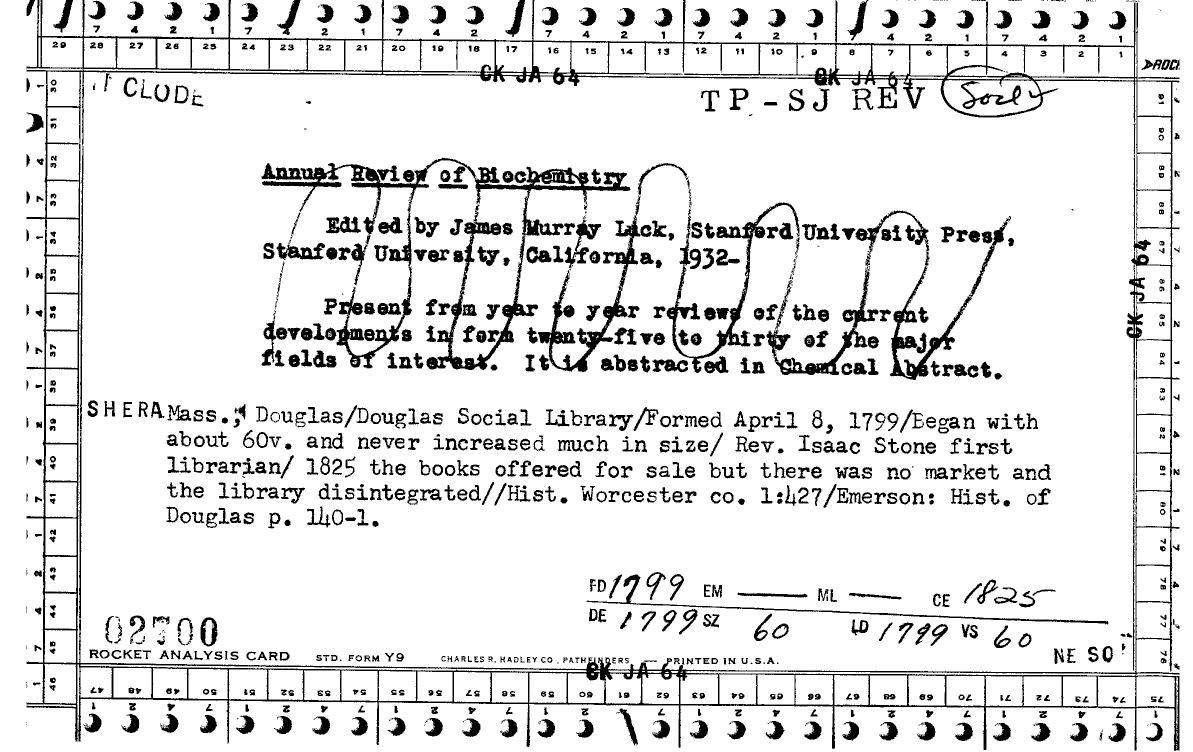 7 4 2 1 7 4 2 1 7 4 2 1 7 4 2 1 7 4 2 1 7 4 2 1
29 28 27 26 25 24 23 22 21 20 19 18 17 16 15 14 13 12 11 10 9 8 7 6 5 4 3 2 1
CK JA 64 CK JA 64
CLODE TP-SJ REV
Annual Review of Biochemistry
Edited by James Murray Luck, Stanford University Press,
Stanford University, California, 1932-
Present from year to year reviews of the current
developments in form twenty-five to thirty of the major
fields of interest. It is abstracted in Chemical Abstract.
SHERA Mass.; Douglas/Douglas Social Library/Formed April 8, 1799/Began with
about 60v. and never increased much in size/ Rev. Isaac Stone first
librarian/ 1825 the books offered for sale but there was no market and
the library disintegrated//Hist. Worcester co. 1:427/Emerson: Hist. of
Douglas p. 140-1.
FD 1799 EM — ML — CE 1825
DE 1799 SZ 60 LD 1799 VS 60
02700 NE SO
ROCKET ANALYSIS CARD STD. FORM Y9 CHARLES R. HADLEY CO., PATHFINDERS — PRINTED IN U.S.A.
CK JA 64
47 48 49 50 51 52 53 54 55 56 57 58 59 60 61 62 63 64 65 66 67 68 69 70 71 72 73 74 75
30 31 32 33 34 35 36 37 38 39 40 41 42 43 44 45 46
91 90 89 88 87 86 85 84 83 82 81 80 79 78 77 76
CK JA 64